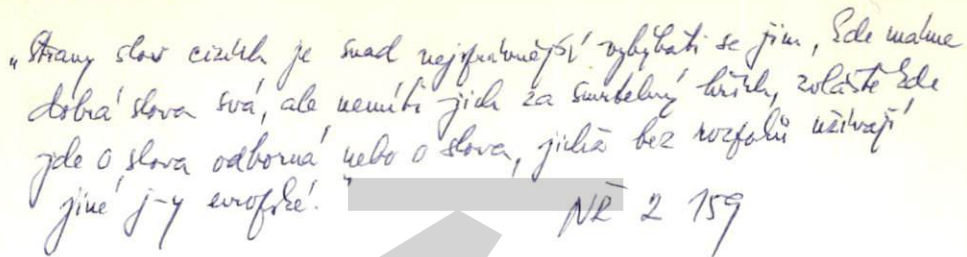 „Strany slov cizích je snad nejsprávnější vyhýbati se jim, kde máme
dobrá slova svá, ale nemíti jich za smrtelný hřích, zvláště kde
jde o slova odborná nebo o slova, jichž bez rozpaků užívají
jiné j-y evropské."
NŘ 2 159